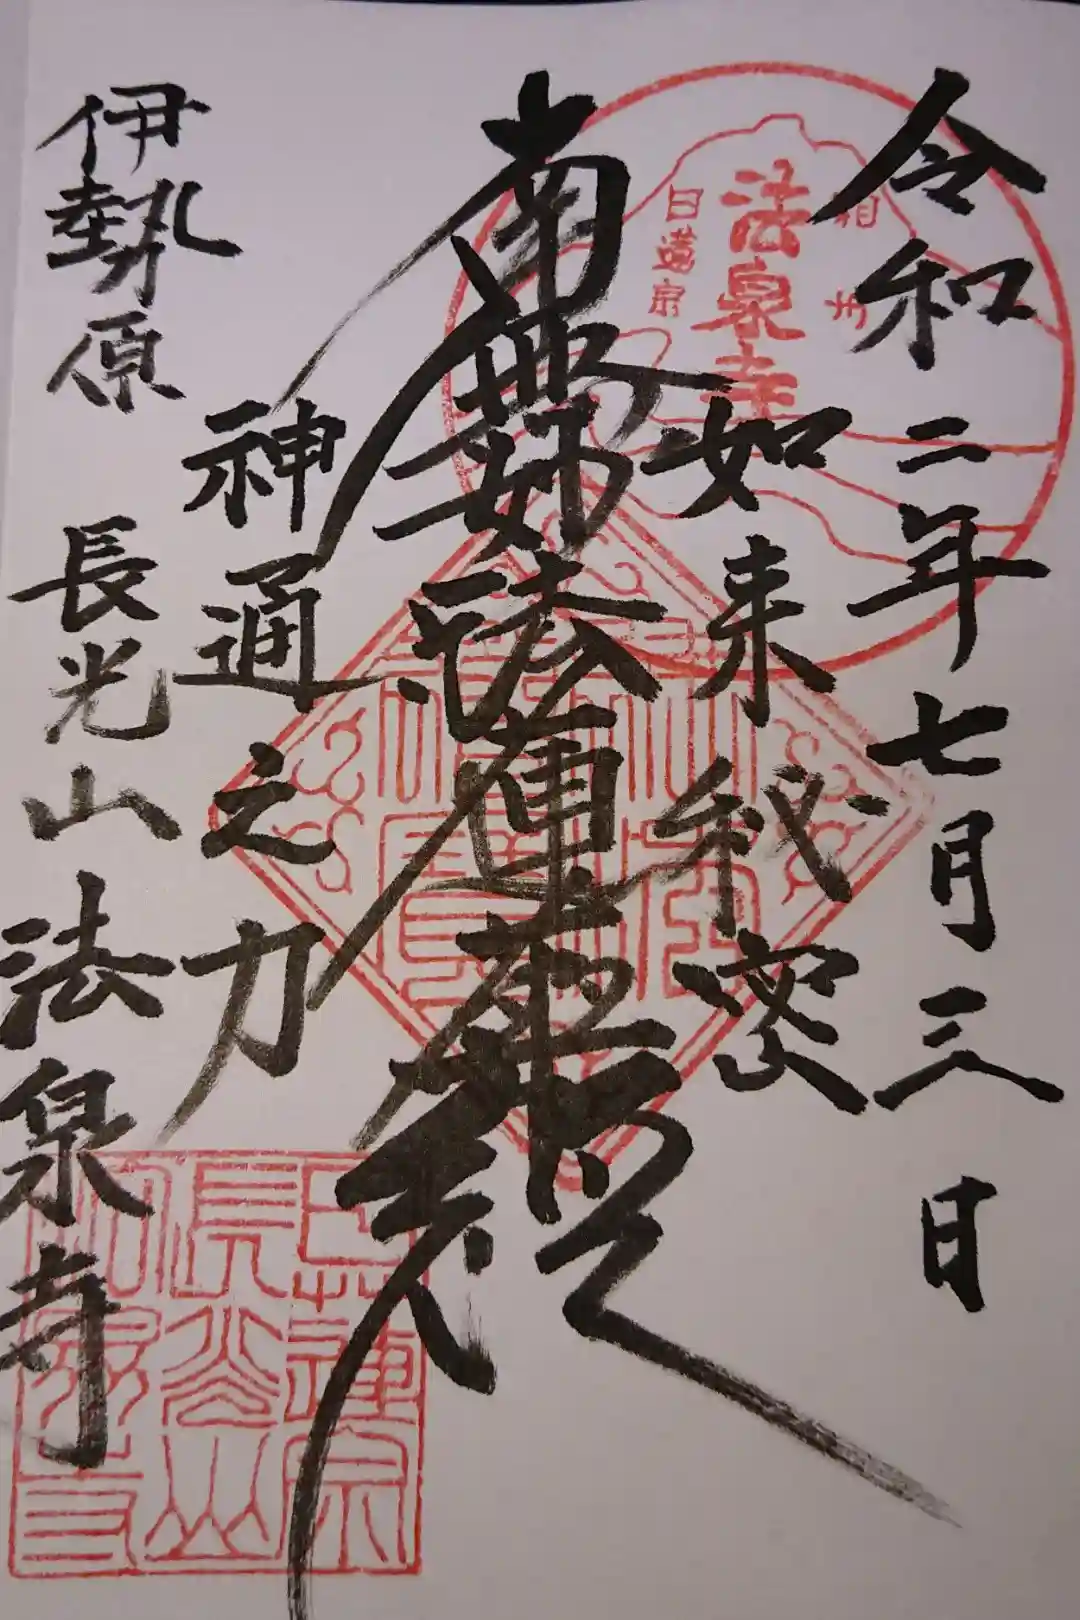 令和二年七月三日
如来秘密
南無妙法蓮華経
神通之力
伊勢原 長光山法泉寺
相州
法泉寺
日蓮宗
日蓮宗
長光山
法泉寺